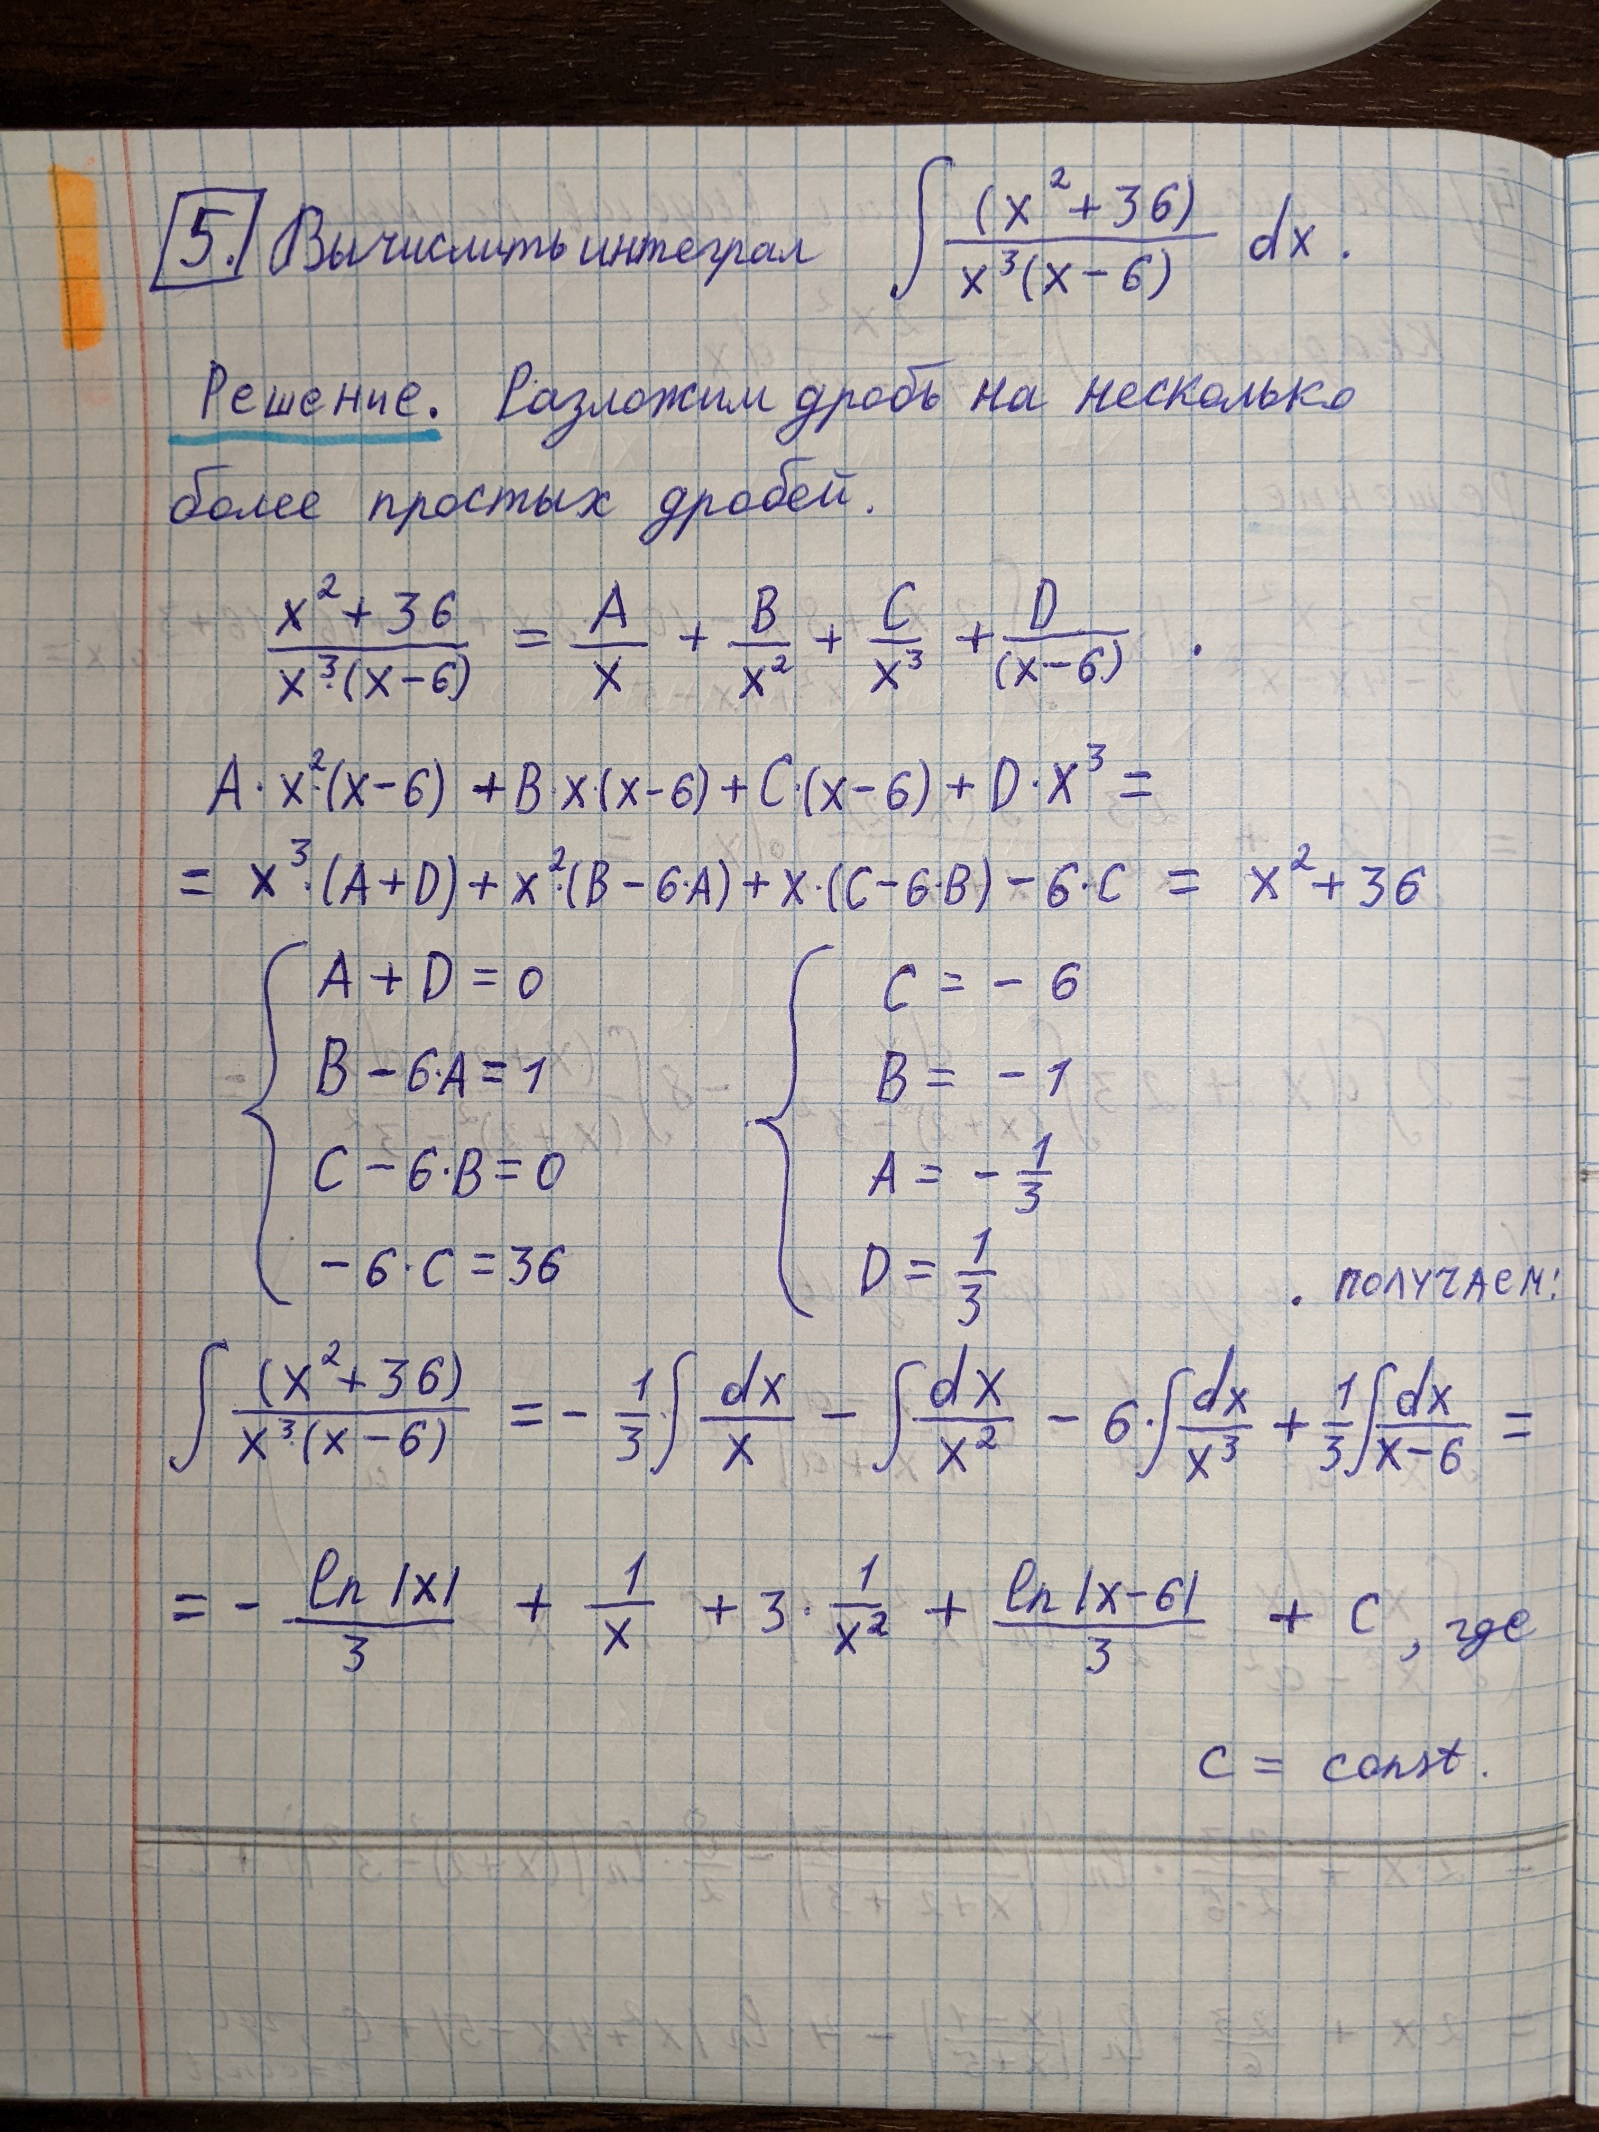 5. Вычислить интеграл ∫ (x²+36)/(x³(x-6)) dx.
Решение. Разложим дробь на несколько
более простых дробей.
(x²+36)/(x³·(x-6)) = A/x + B/x² + C/x³ + D/(x-6) .
A·x²·(x-6) + B·x·(x-6) + C·(x-6) + D·x³ =
= x³·(A+D) + x²·(B-6·A) + x·(C-6·B) - 6·C = x²+36
A + D = 0 C = - 6
B - 6·A = 1 B = - 1
C - 6·B = 0 A = - 1/3
- 6·C = 36 D = 1/3 . получаем:
∫ (x²+36)/(x³·(x-6)) = - 1/3·∫ dx/x - ∫ dx/x² - 6·∫ dx/x³ + 1/3 ∫ dx/(x-6) =
= - ln|x|/3 + 1/x + 3·1/x² + ln|x-6|/3 + C, где
C = const.